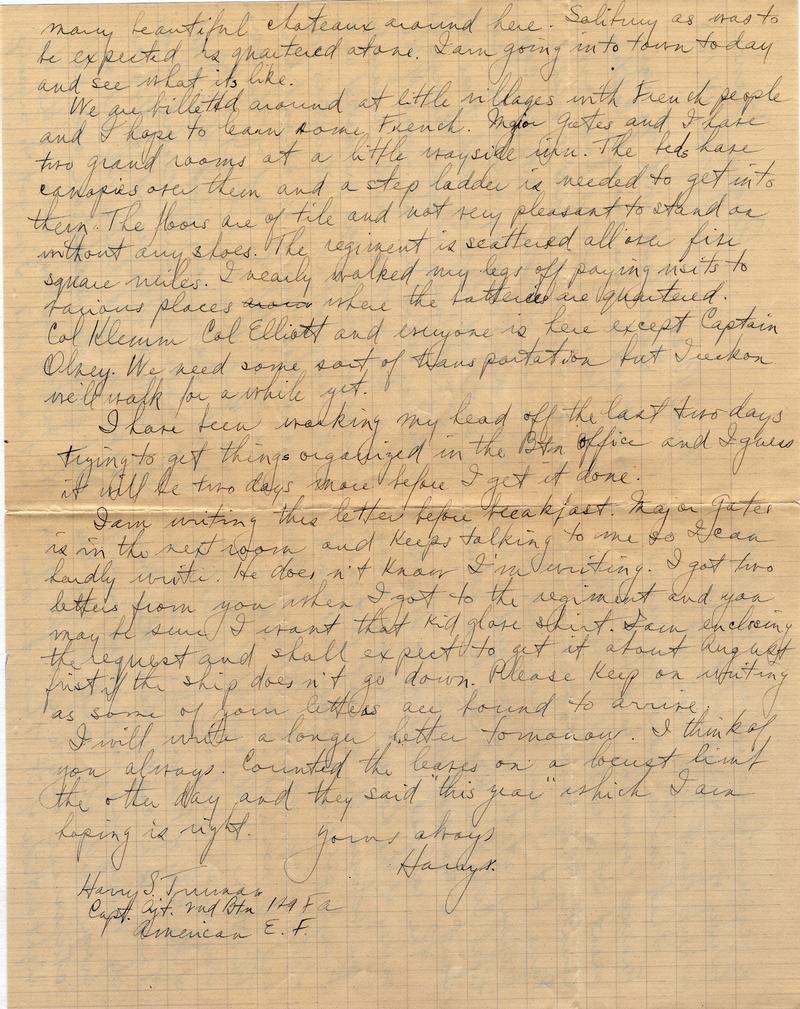 many beautiful chateaux around here. Salisbury as was to
be expected is quartered at one. I am going into town today
and see what its like.
We are billeted around at little villages with French people
and I hope to learn some French. Major Gates and I have
two grand rooms at a little wayside inn. The beds have
canopies over them and a step ladder is needed to get into
them. The floors are of tile and not very pleasant to stand on
without any shoes. The regiment is scattered all over five
square miles. I nearly walked my legs off paying visits to
various places where the batteries are quartered.
Col Klemm Col Elliott and everyone is here except Captain
Olney. We need some sort of transportation but I reckon
we'll walk for a while yet.
I have been working my head off the last two days
trying to get things organized in the Btn office and I guess
it will be two days more before I get it done.
I am writing this letter before breakfast. Major Gates
is in the next room and keeps talking to me so I can
hardly write. He does n't know I'm writing. I got two
letters from you when I got to the regiment and you
may be sure I want that kid glove shirt. I am enclosing
the request and shall expect to get it about August
first if the ship does n't go down. Please keep on writing
as some of your letters are bound to arrive.
I will write a longer letter tomorrow. I think of
you always. Counted the leaves on a locust limb
the other day and they said "this year" which I am
hoping is right. Yours always
Harry.
Harry S. Truman
Capt. Ajt. 2nd Btn 129 F a
American E. F.